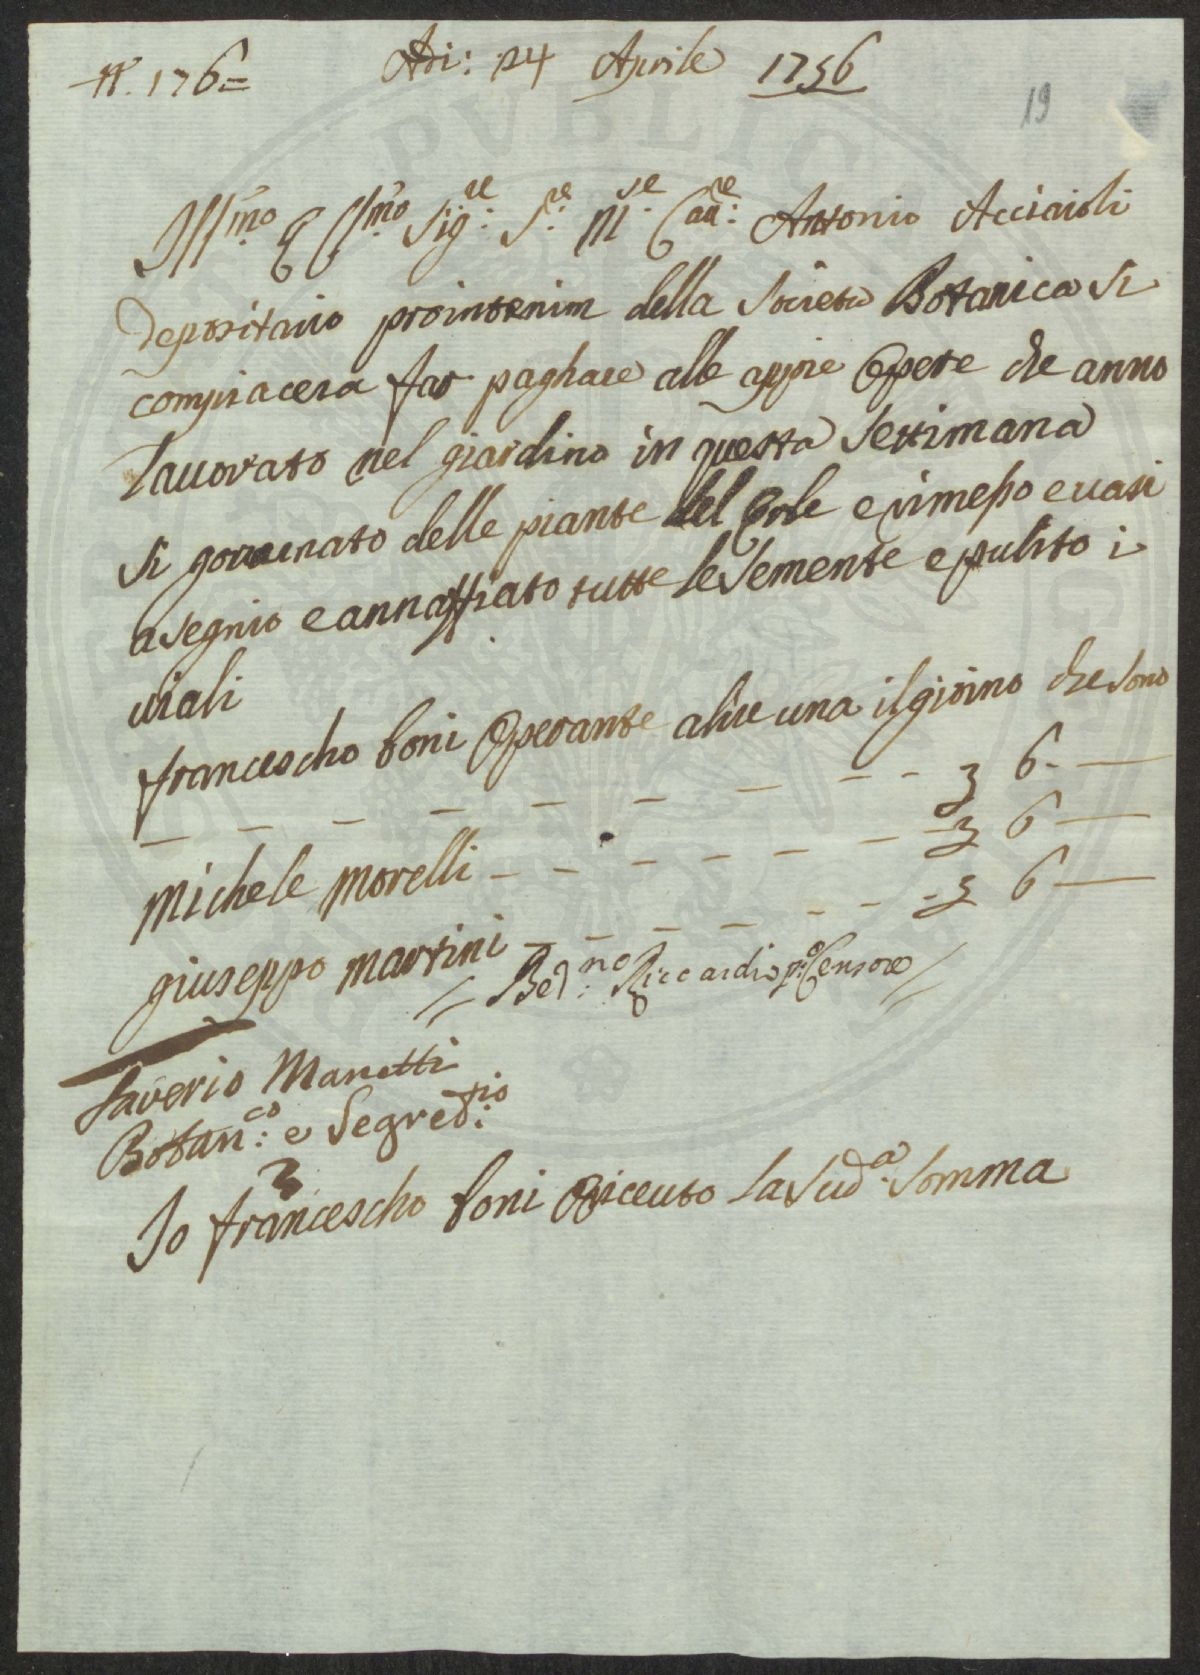 N. 176=
Adi: 24 Aprile 1756
19
Ill:mo e Cl:mo Sig:re S:re M:se Cau:re Antonio Acciaioli
depositario prointerim della Societa Botanica si
compiacera far paghare alle appie Opere che anno
lauorato nel giardino in questa Settimana
si gouuenato delle piante del Orle e rimesso e uasi
a segnio e annaffiato tutte le Semente e pulito i
uiali
francescho boni Operante a lire una il giorno che sono
3 6 —
Michele Morelli 3 6 —
giuseppo Martini 3 6 —
// Bed:no Riccardi p:o Censore //
Saverio Manetti
Botan:co e Segred:rio
Io francescho boni O riceuto la Sud:a Somma